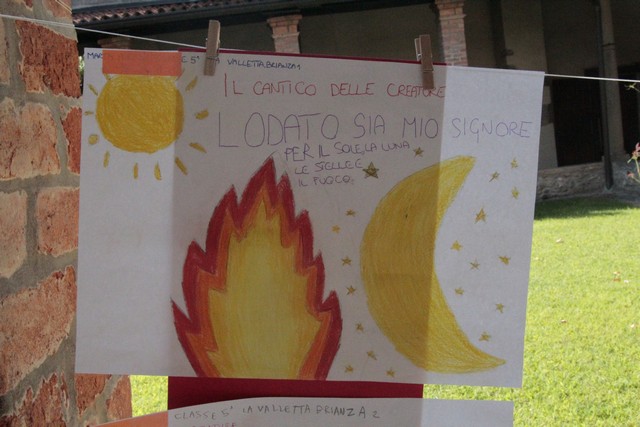 VALLETTA BRIANZA
IL CANTICO DELLE CREATURE
LODATO SIA MIO SIGNORE
PER IL SOLE LA LUNA
LE STELLE E
IL FUOCO.
CLASSE 5ª LA VALLETTA BRIANZA